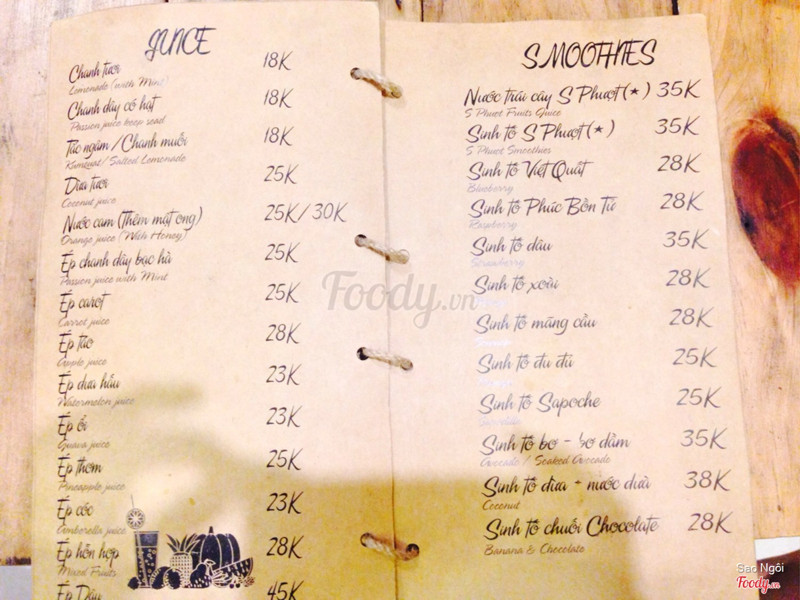 JUICE
Chanh tươi 18K
Lemonade (with Mint)
Chanh dây có hạt 18K
Passion juice keep sead
Tắc ngâm / Chanh muối 18K
Kumquat/ Salted Lemonade
Dừa tươi 25K
Coconut juice
Nước cam (Thêm mật ong) 25K/30K
Orange juice (With Honey)
Ép chanh dây bạc hà 25K
Passion juice with Mint
Ép carot 25K
Carrot juice
Ép táo 28K
Apple juice
Ép dưa hấu 23K
Watermelon juice
Ép ổi 23K
Guava juice
Ép thơm 25K
Pineapple juice
Ép cóc 23K
Ambarella juice
Ép hỗn hợp 28K
Mixed Fruits
Ép Dâu 45K
SMOOTHIES
Nước trái cây S Phượt (★) 35K
S Phuot Fruits Juice
Sinh tố S Phượt (★) 35K
S Phuot Smoothies
Sinh tố Việt Quất 28K
Blueberry
Sinh tố Phúc Bồn Tử 28K
Raspberry
Sinh tố dâu 35K
Strawberry
Sinh tố xoài 28K
Sinh tố mãng cầu 28K
Sinh tố đu đủ 25K
Sinh tố Sapoche 25K
Sinh tố bơ - bơ dầm 35K
Avocado / Soaked Avocado
Sinh tố dừa + nước dừa 38K
Coconut
Sinh tố chuối Chocolate 28K
Banana & Chocolate
Foody.vn
Sạc Ngôi
Foody.vn